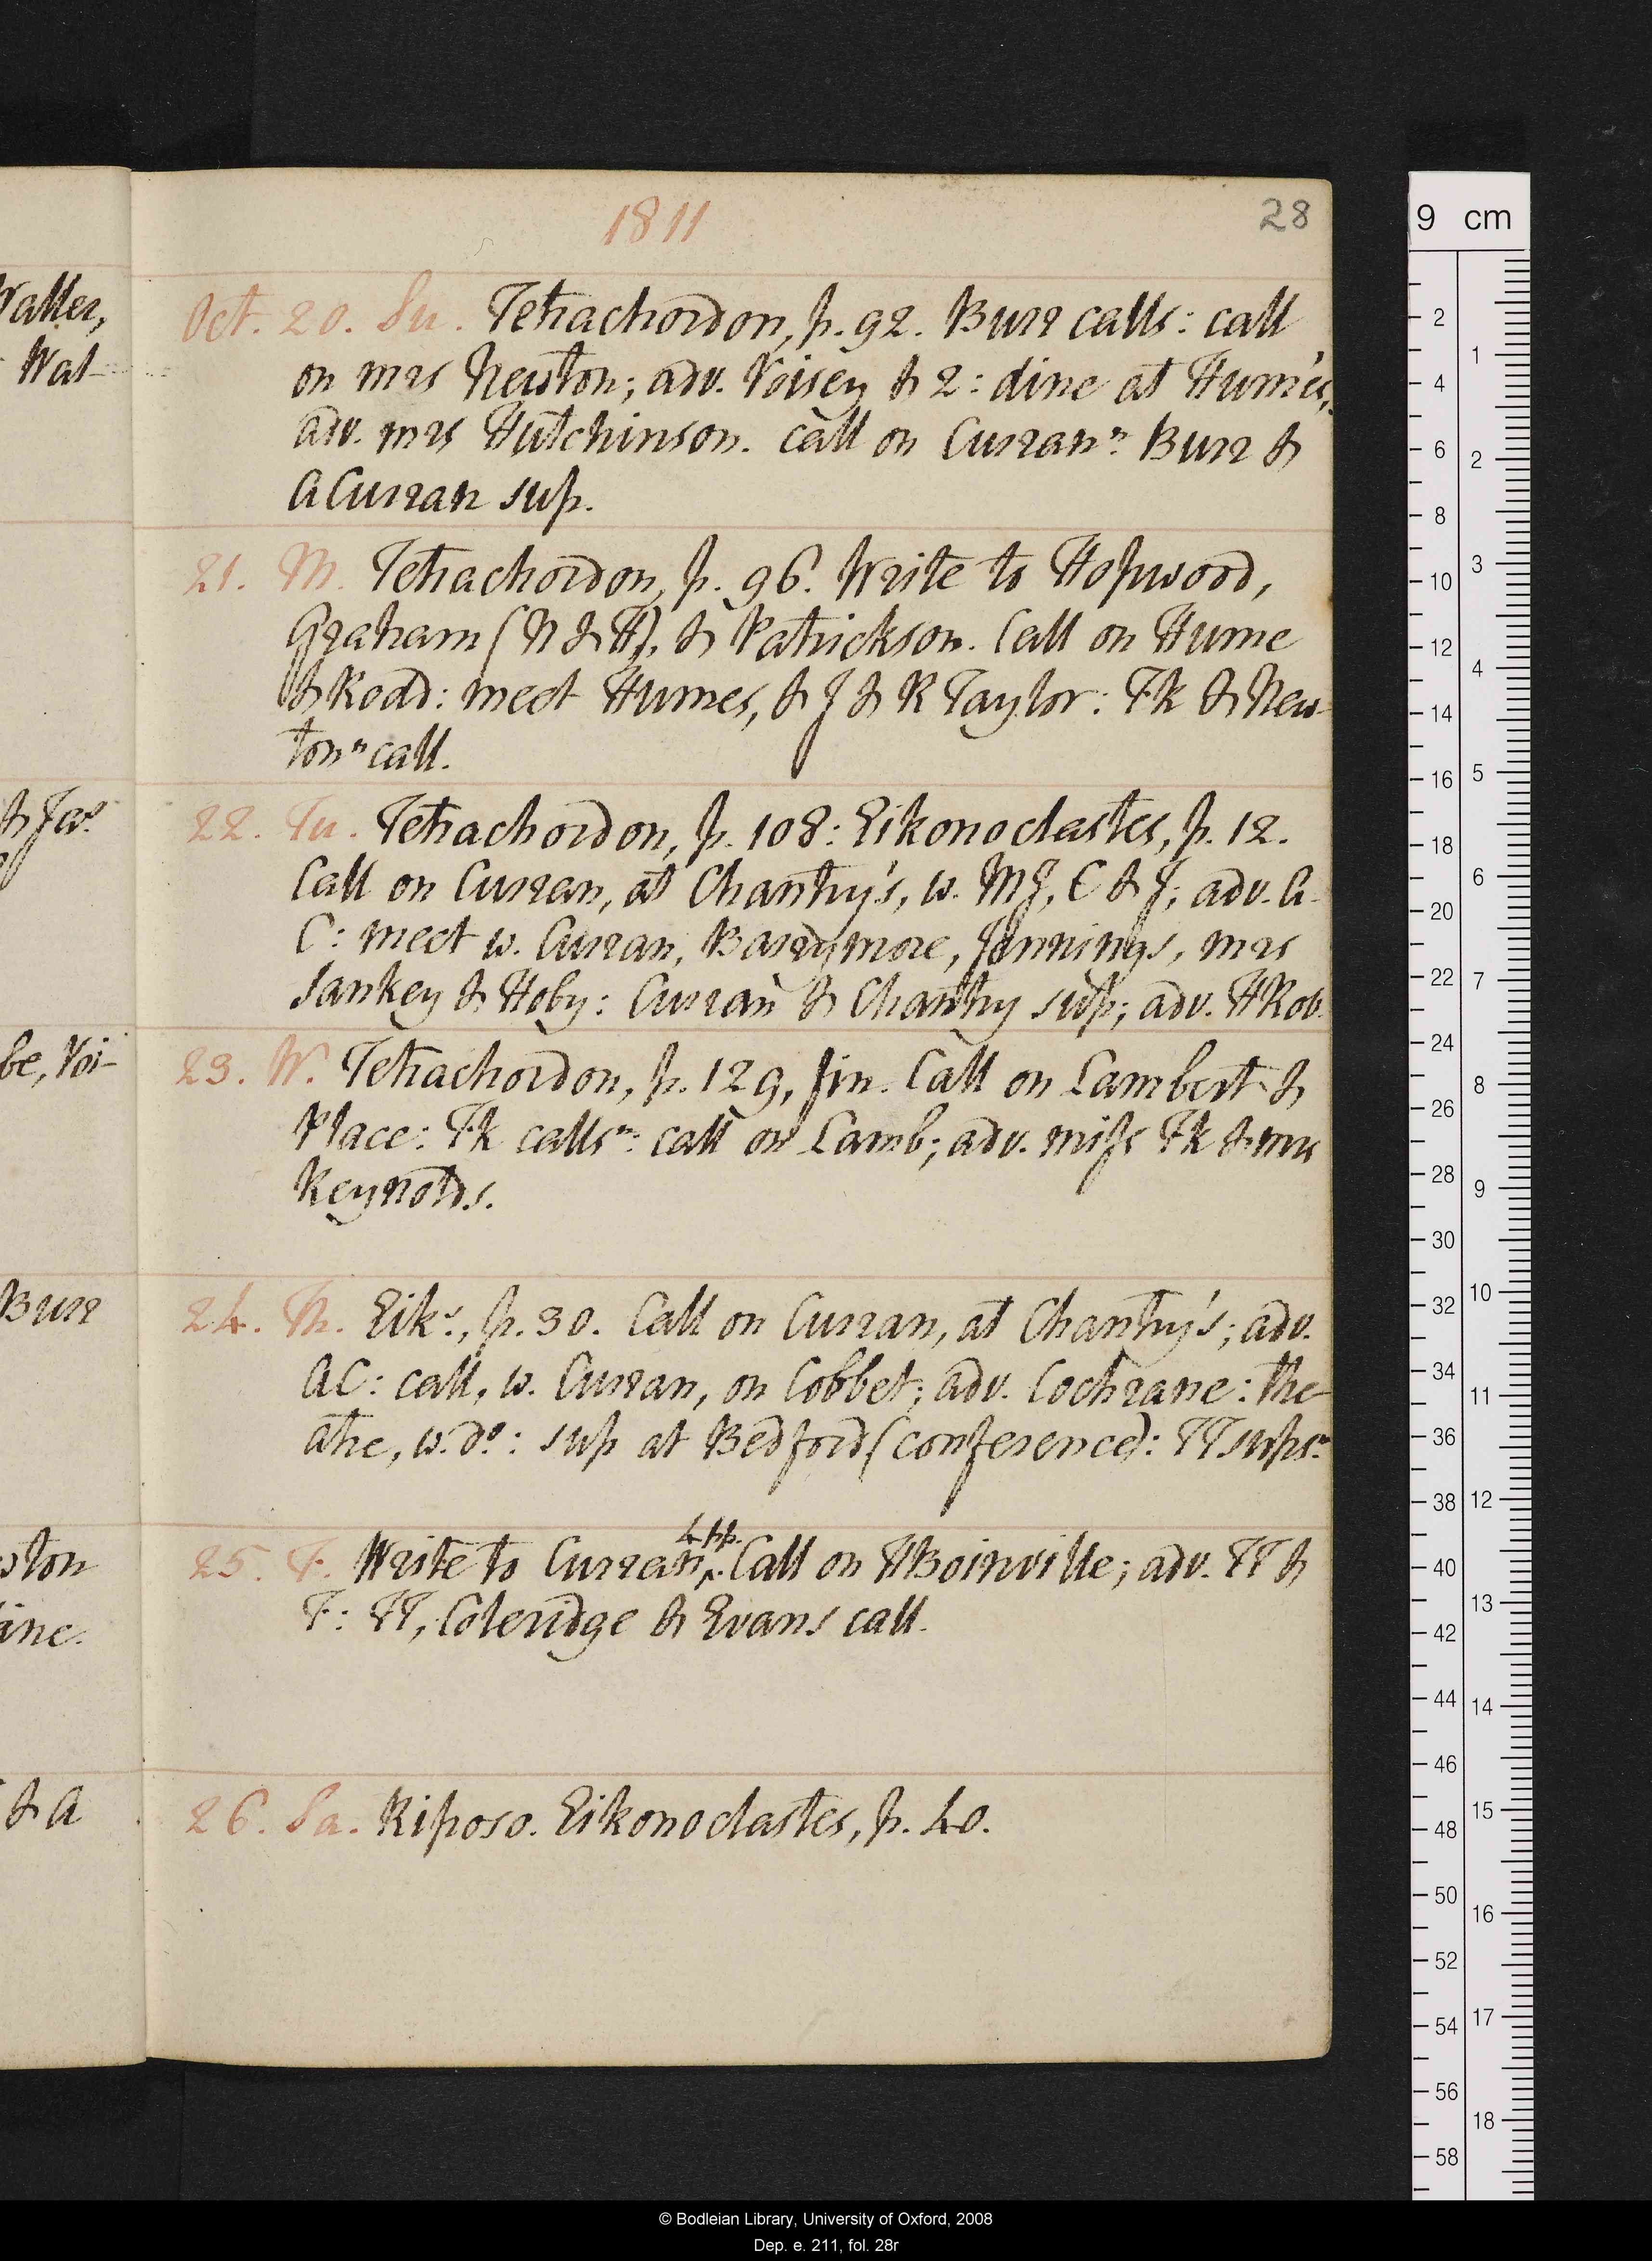 1811
28
Waller,
Wal-
Oct. 20. Su. Tetrachordon, p. 92. Burr calls: call
on mrs Newton; adv. Voisey & 2: dine at Hume's,
adv. mrs Hutchinson. call on Curran n: Burr &
A Curran sup.
21. M. Tetrachordon, p. 96. Write to Hopwood,
Graham (N & H), & Patrickson. Call on Hume
& Road: meet Humes, & J & R Taylor: Fk & New-
ton n call.
& Jas
22. Tu. Tetrachordon, p. 108: Eikonoclastes, p. 12.
Call on Curran, at Chantry's, w. MJ, C & J; adv. A.
C: meet w. Curran, Barrymore, Jennings, mrs
Sankey & Hoby: Curran & Chantry sup; adv. H Rob.
be, Voi-
23. W. Tetrachordon, p. 129, fin. Call on Lambert &
Place: Fk calls n: call on Lamb; adv. miss Fk & mrs
Reynolds.
Burr
24. Th. Eiks., p. 30. Call on Curran, at Chantry's; adv.
AC: call, w. Curran, on Cobbet; adv. Cochrane: the-
atre, w. do: sup at Bedford (conference): TT sups n.
wton
dine.
25. F. Write to Curran, 4 pp. Call on H Boinville; adv. TT &
F: TT, Coleridge & Evans call.
& A
26. Sa. Riposo. Eikonoclastes, p. 40.
9 cm
2 4 6 8 10 12 14 16 18 20 22 24 26 28 30 32 34 36 38 40 42 44 46 48 50 52 54 56 58
1 2 3 4 5 6 7 8 9 10 11 12 13 14 15 16 17 18
© Bodleian Library, University of Oxford, 2008
Dep. e. 211, fol. 28r